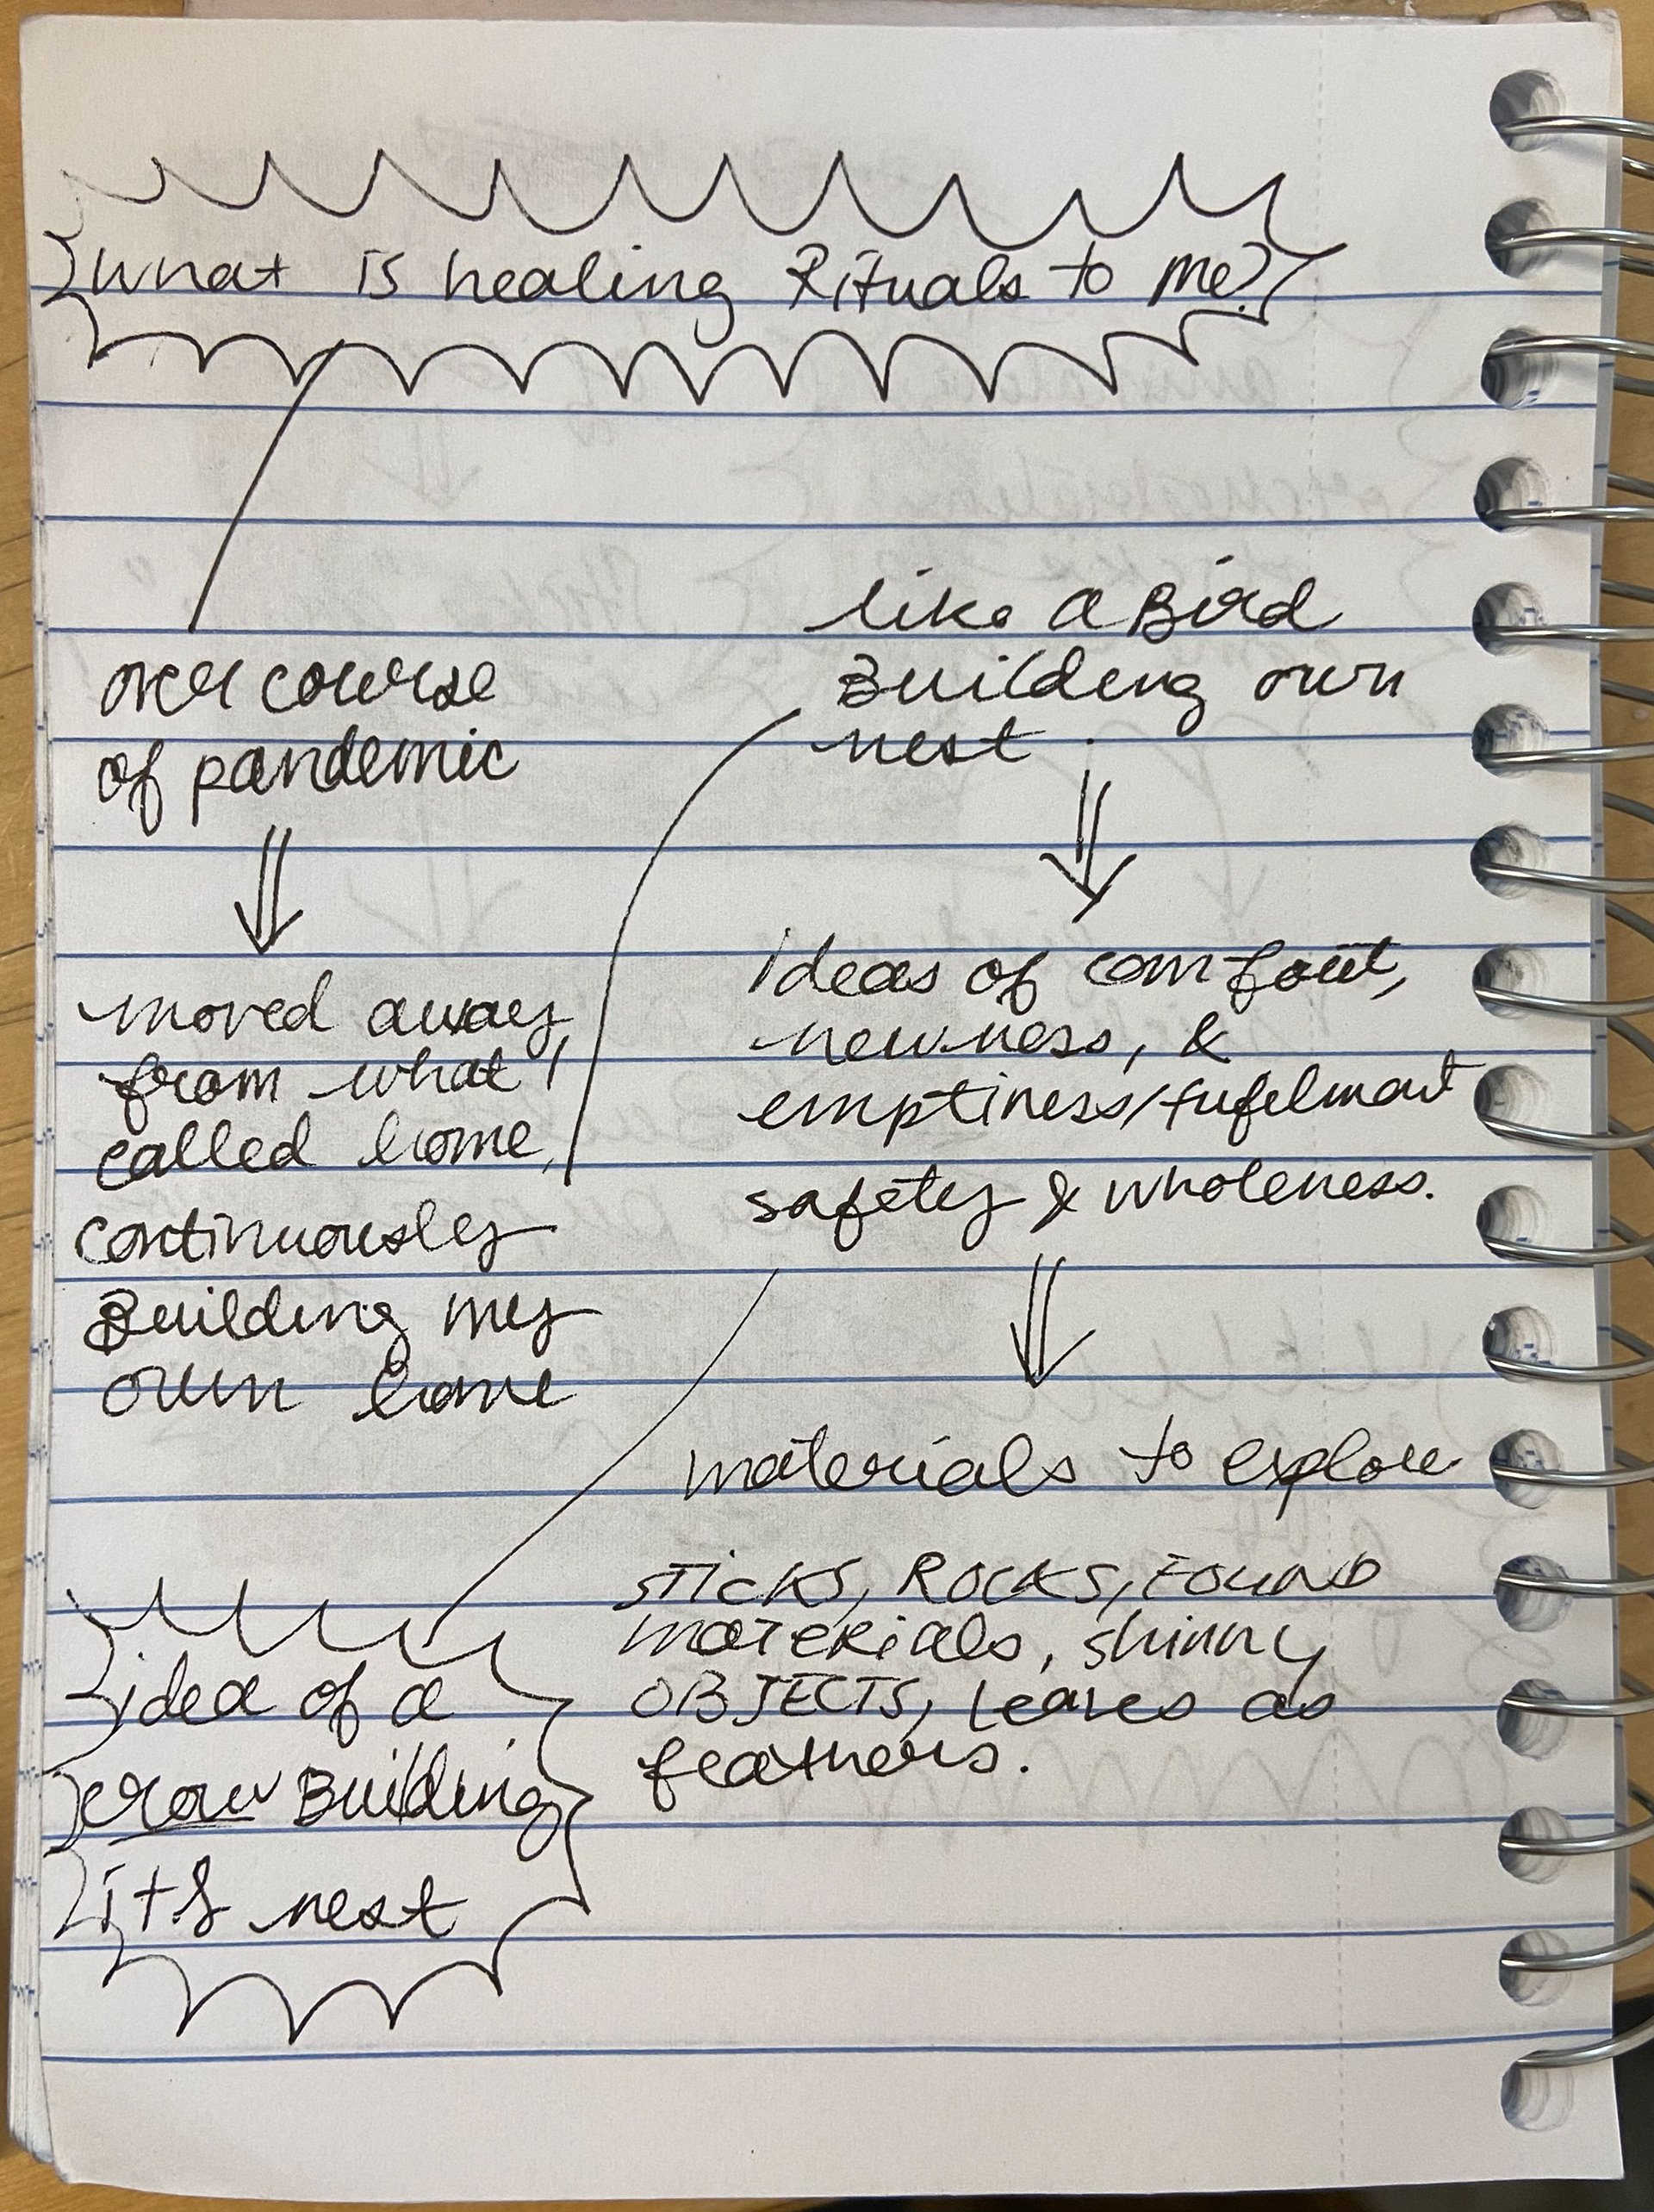 what is healing Rituals to me?
over course
of pandemic
moved away
from what I
called home,
continuously
Building my
own home
like a Bird
Building own
nest.
Ideas of comfort,
newness, &
emptiness/fufelment
safety & wholeness.
materials to explore
sticks, Rocks, Found
materials, shinny
OBJECTS, Leaves as
feathers.
idea of a
crow Building
its nest